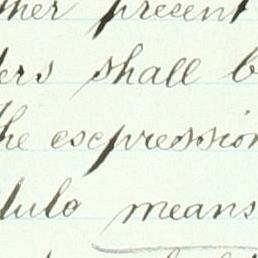 ther precent
ers shall b
he escpression
lulo means